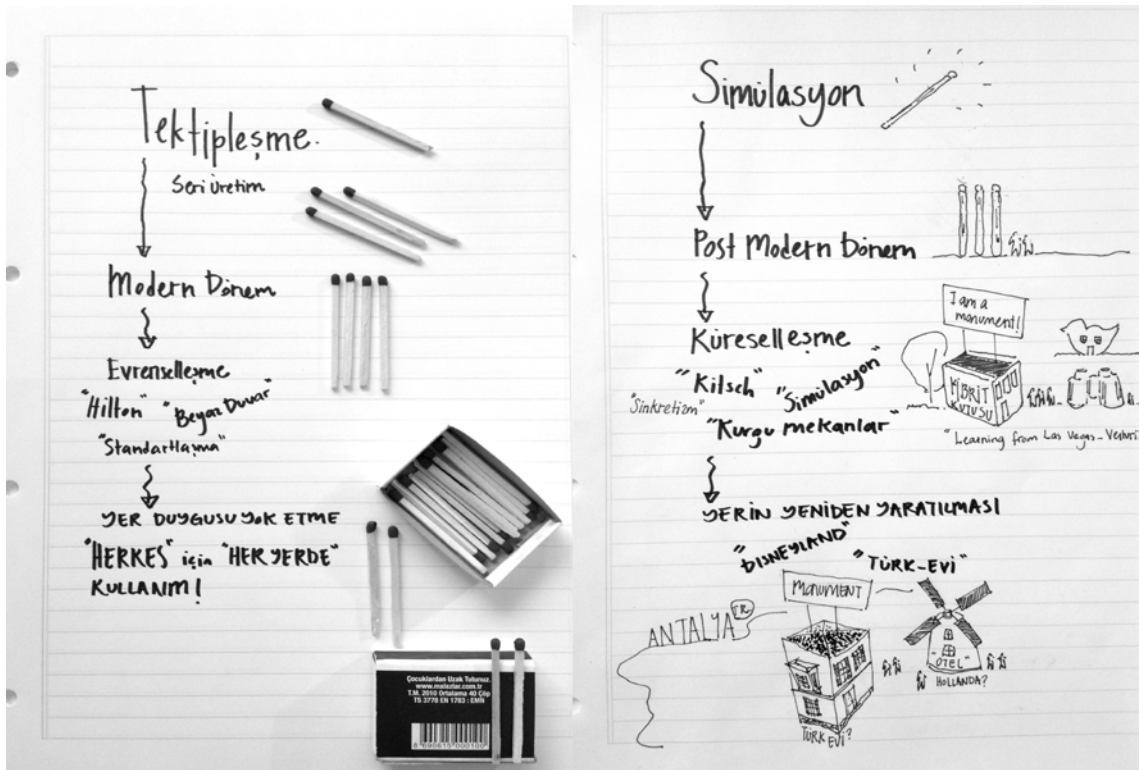 Tektipleşme.
Seri üretim
Modern Dönem
Evrenselleşme
"Hilton" "Beyaz Duvar"
"Standartlaşma"
YER DUYGUSU YOK ETME
"HERKES" için "HER YERDE"
KULLANIM!
Çocuklardan Uzak Tutunuz.
www.malazlar.com.tr
T.M. 2010 Ortalama 40 Çöp
TS 3776 EN 1783 : EMN
8 690615 000100
Simülasyon
Post Modern Dönem
Küreselleşme
"Kitsch" "Simülasyon"
"Sinkretizm"
"Kurgu mekanlar"
I am a
monument!
KİBRİT
KUTUSU
"Learning from Las Vegas - Venturi
YERİN YENİDEN YARATILMASI
"DISNEYLAND"
"TÜRK-EVİ"
MONUMENT
ANTALYA TR
"OTEL"
HOLLANDA?
TÜRK EVİ?